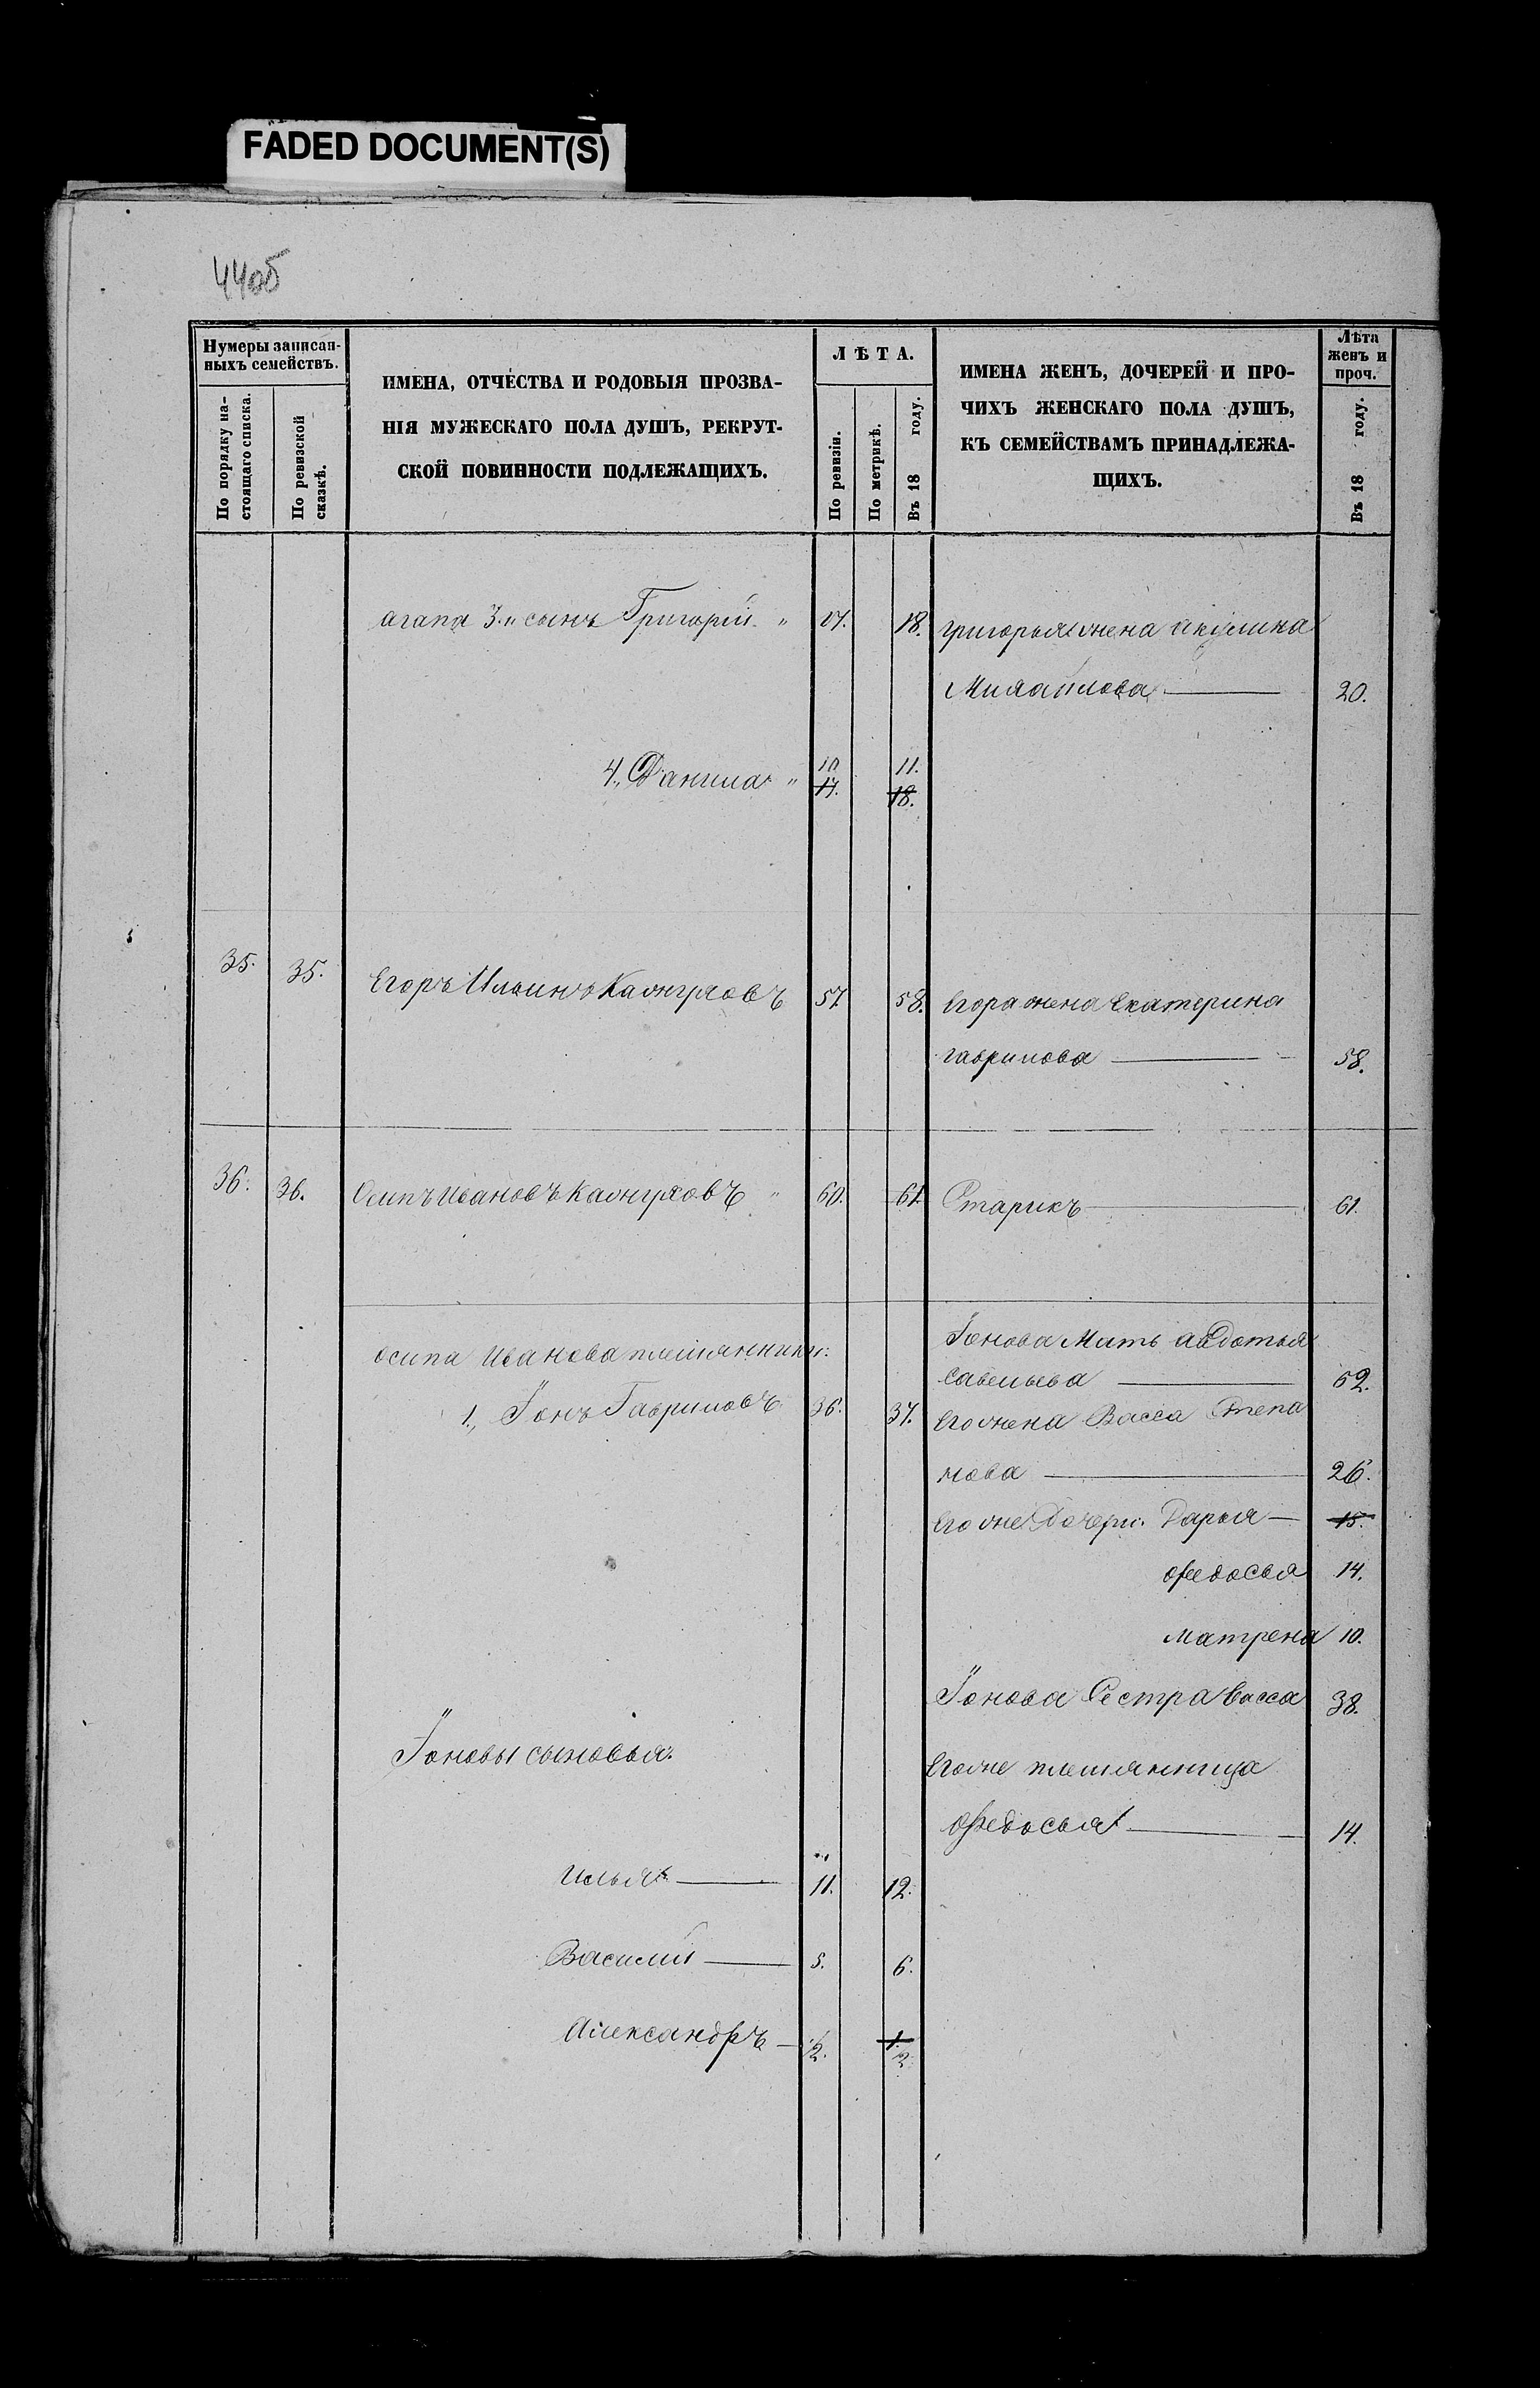 FADED DOCUMENT(S)
44об
Нумеры записан-
ныхъ семействъ.
По порядку на-
стоящаго списка.
По ревизской
сказкѣ.
ИМЕНА, ОТЧЕСТВА И РОДОВЫЯ ПРОЗВА-
НІЯ МУЖЕСКАГО ПОЛА ДУШЪ, РЕКРУТ-
СКОЙ ПОВИННОСТИ ПОДЛЕЖАЩИХЪ.
ЛѢТА.
По ревизіи.
По метрикѣ.
Въ 18 году.
ИМЕНА ЖЕНЪ, ДОЧЕРЕЙ И ПРО-
ЧИХЪ ЖЕНСКАГО ПОЛА ДУШЪ,
КЪ СЕМЕЙСТВАМЪ ПРИНАДЛЕЖА-
ЩИХЪ.
Лѣта
женъ и
проч.
Въ 18 году.
агапа 3.„ сынъ Григорій „ 17. 18. григорья жена акулина
Михайлова 20.
10 11.
4., Данила „ 17. 18.
35. 35. Егоръ Ильинъ Кажуховъ 57. 58. Егора жена Екатерина
гаврилова 58.
36. 36. Осипъ Ивановъ Кажуховъ „ 60. 61. Старикъ 61.
осипа Иванова племянники: Іонова Мать авдотья
савельева 62.
1., Іонъ Гавриловъ 36. 37. Его жена Васса Степа
нова 26.
Его же Дочери. Дарья 15.
Федосья 14.
Матрена 10.
Іонова Сестра Васса 38.
Іоновы сыновья: Его же племянница
Федосья 14.
Илья 11. 12.
Василій 5. 6.
Александръ 1/2. 1.
2.